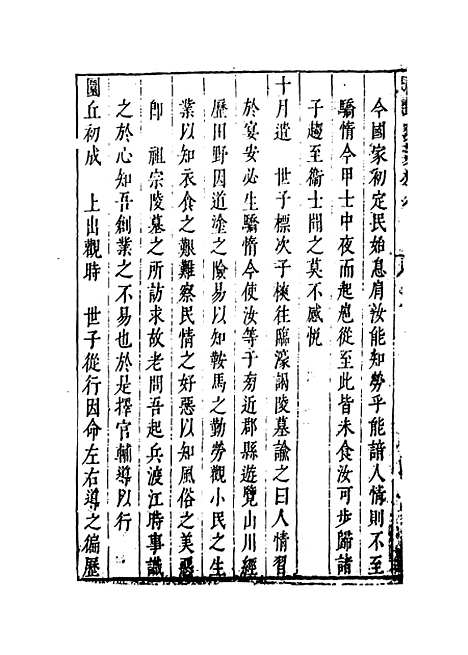 今國家初定民始息肩汝能知勞乎能諳人情則不至
驕惰今甲士中夜而起扈從至此皆未食汝可步歸諸
子趨至衛士聞之莫不感悅
十月遣 世子標次子樉往臨濠謁陵墓諭之曰人情習
於宴安必生驕惰今使汝等于旁近郡縣遊覽山川經
歷田野因道塗之險易以知鞍馬之勤勞觀小民之生
業以知衣食之艱難察民情之好惡以知風俗之美惡
卽 祖宗陵墓之所訪求故老問吾起兵渡江時事識
之於心知吾創業之不易也於是擇官輔導以行
圜丘初成 上出觀時 世子從行因命左右導之徧歷